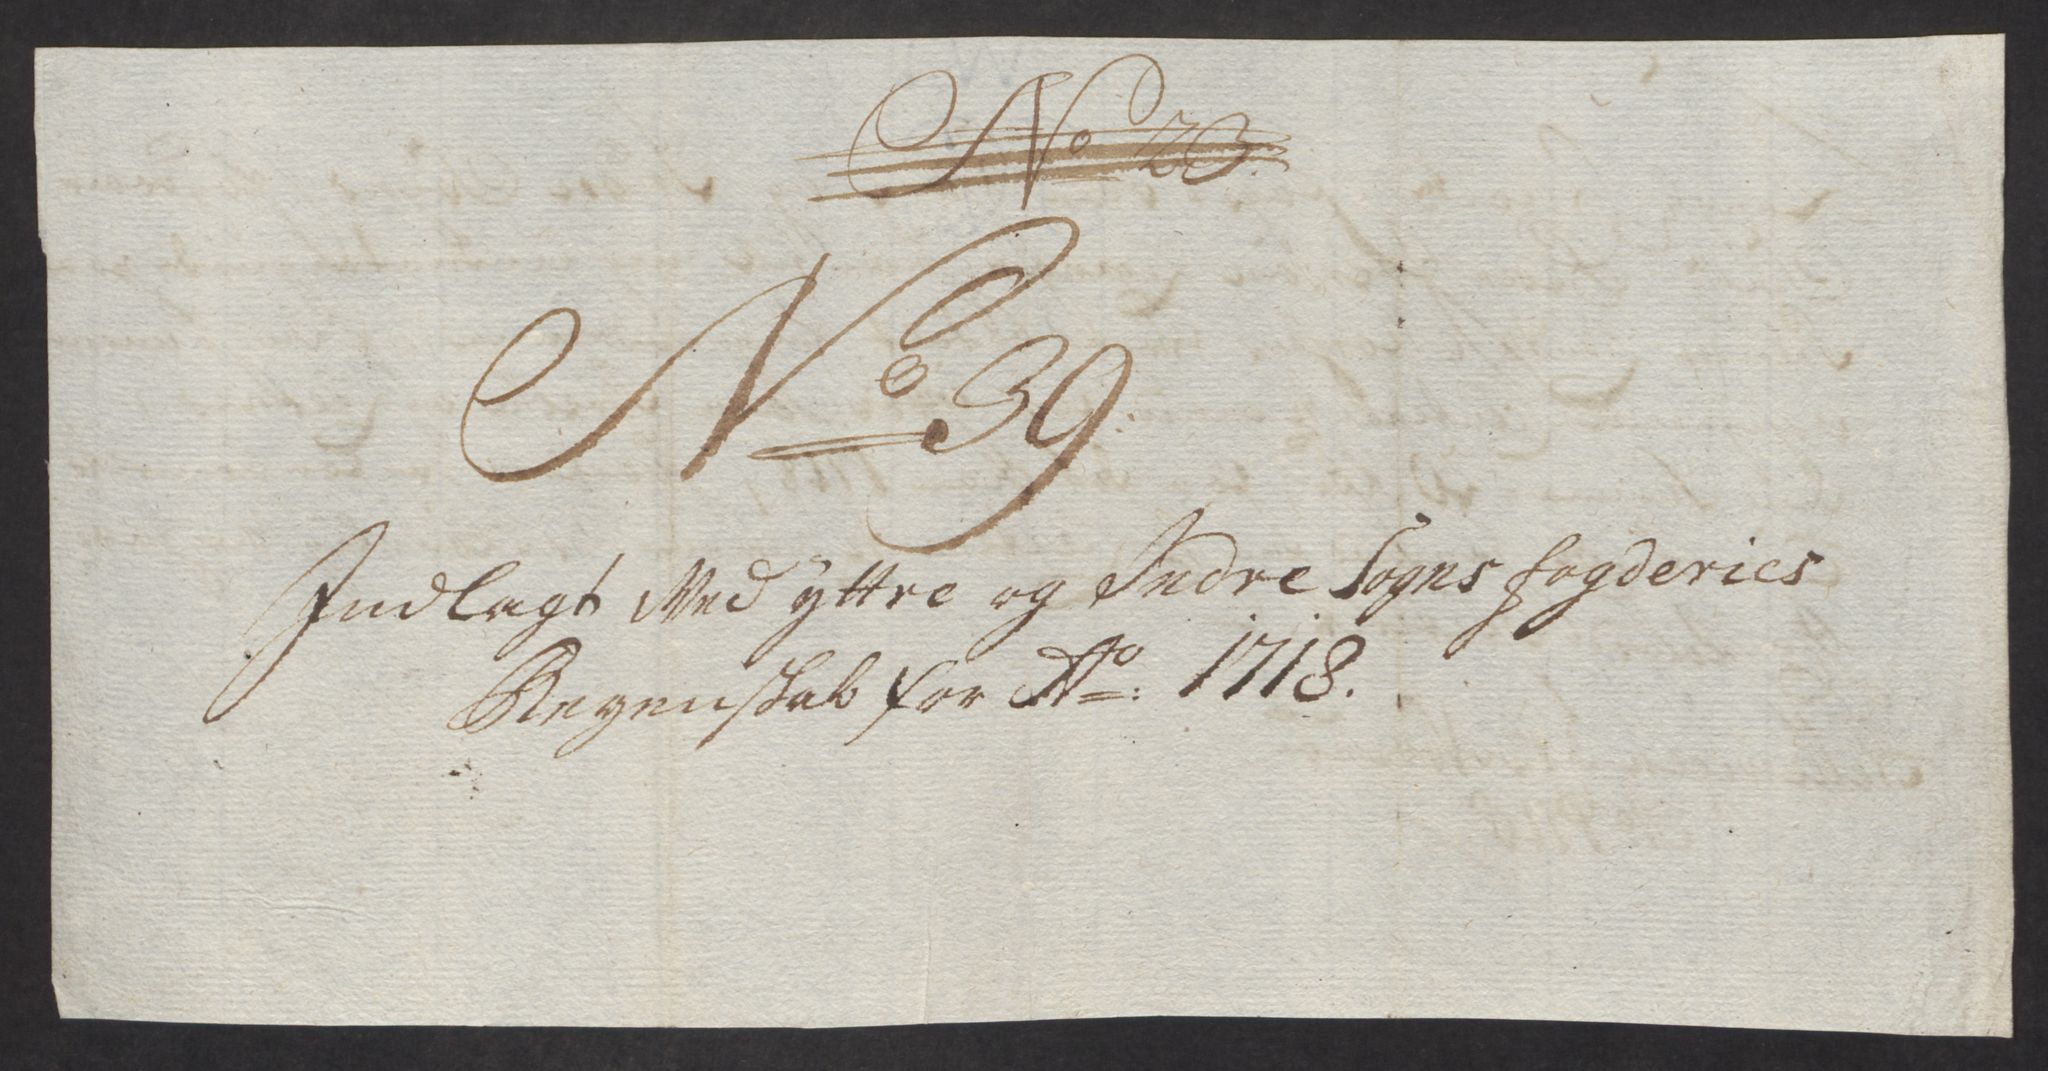 No 23.
No. 39.
Indlagt Med yttre og Indre Sogns fogderies
Regenskab for Ao: 1718.